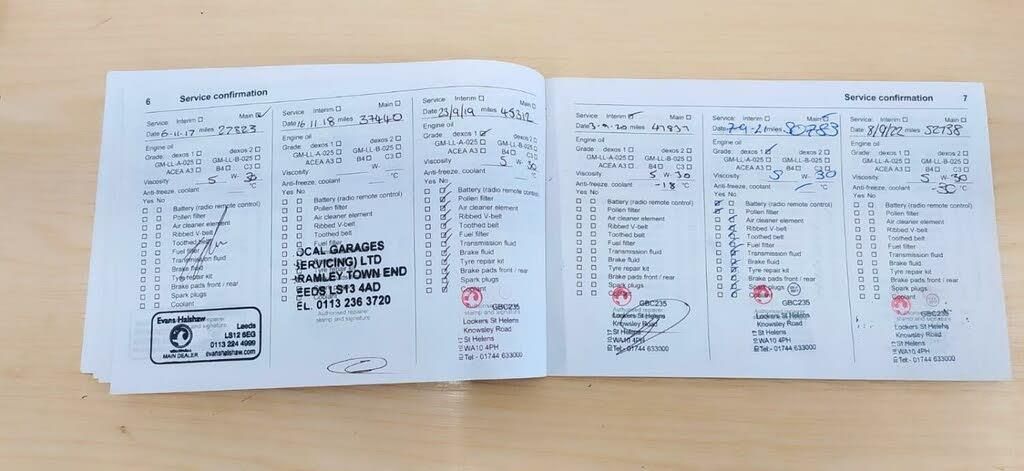 6 Service confirmation
Service Interim Main
Date 6-11-17 miles 27823
Engine oil
Grade: dexos 1 dexos 2
GM-LL-A-025 GM-LL-B-025
ACEA A3 B4 C3
Viscosity 5 W- 30
Anti-freeze, coolant °C
Yes No
Battery (radio remote control)
Pollen filter
Air cleaner element
Ribbed V-belt
Toothed belt
Fuel filter
Transmission fluid
Brake fluid
Tyre repair kit
Brake pads front / rear
Spark plugs
Coolant
Evans Halshaw
Leeds
LS12 6EG
0113 224 4999
MAIN DEALER evanshalshaw.com
Service Interim Main
Date 16 11 18 miles 37440
Engine oil
Grade: dexos 1 dexos 2
GM-LL-A-025 GM-LL-B-025
ACEA A3 B4 C3
Viscosity W-
Anti-freeze, coolant °C
Yes No
Battery (radio remote control)
Pollen filter
Air cleaner element
Ribbed V-belt
Toothed belt
Fuel filter
OCAL GARAGES
SERVICING) LTD
RAMLEY TOWN END
EEDS LS13 4AD
EL 0113 236 3720
Authorised repairer
stamp and signature
Service Interim Main
Date 23/9/19 miles 45312
Engine oil
Grade: dexos 1 dexos 2
GM-LL-A-025 GM-LL-B-025
ACEA A3 B4 C3
Viscosity 5 W- 30
Anti-freeze, coolant °C
Yes No
Battery (radio remote control)
Pollen filter
Air cleaner element
Ribbed V-belt
Toothed belt
Fuel filter
Transmission fluid
Brake fluid
Tyre repair kit
Brake pads front / rear
Spark plugs
Coolant
GBC235
Lookers St Helens
Knowsley Road
St Helens
WA10 4PH
Tel:- 01744 633000
Service confirmation 7
Service Interim Main
Date 3-9-20 miles 47837
Engine oil
Grade: dexos 1 dexos 2
GM-LL-A-025 GM-LL-B-025
ACEA A3 B4 C3
Viscosity 5 W- 30
Anti-freeze, coolant -18 °C
Yes No
Battery (radio remote control)
Pollen filter
Air cleaner element
Ribbed V-belt
Toothed belt
Fuel filter
Transmission fluid
Brake fluid
Tyre repair kit
Brake pads front / rear
Spark plugs
Coolant
GBC235
Lookers St Helens
Knowsley Road
St Helens
WA10 4PH
Tel:- 01744 633000
Service Interim Main
Date 7-9-21 miles 50783
Engine oil
Grade: dexos 1 dexos 2
GM-LL-A-025 GM-LL-B-025
ACEA A3 B4 C3
Viscosity 5 W- 30
Anti-freeze, coolant °C
Yes No
Battery (radio remote control)
Pollen filter
Air cleaner element
Ribbed V-belt
Toothed belt
Fuel filter
Transmission fluid
Brake fluid
Tyre repair kit
Brake pads front / rear
Spark plugs
Coolant
GBC235
Lookers St Helens
Knowsley Road
St Helens
WA10 4PH
Tel:- 01744 633000
Service Interim Main
Date 8/9/22 miles 52738
Engine oil
Grade: dexos 1 dexos 2
GM-LL-A-025 GM-LL-B-025
ACEA A3 B4 C3
Viscosity 5 W- 30
Anti-freeze, coolant -30 °C
Yes No
Battery (radio remote control)
Pollen filter
Air cleaner element
Ribbed V-belt
Toothed belt
Fuel filter
Transmission fluid
Brake fluid
Tyre repair kit
Brake pads front / rear
Spark plugs
Coolant
GBC235
Lookers St Helens
Knowsley Road
St Helens
WA10 4PH
Tel:- 01744 633000